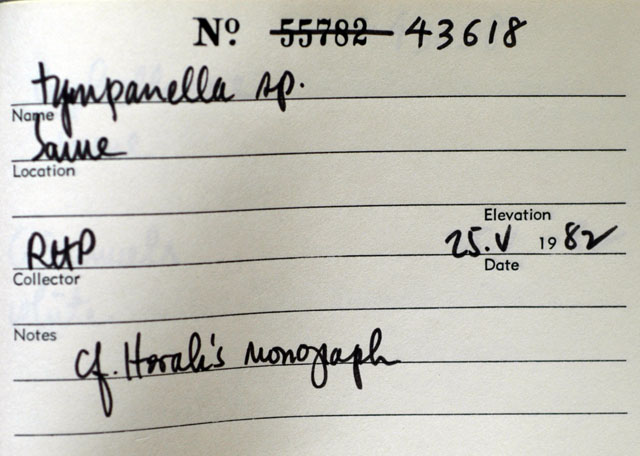 Nº 55782 43618
tympanella sp.
Name
Same
Location
Elevation
RHP 25.V 1982
Collector Date
Notes
cf. Horak's monograph